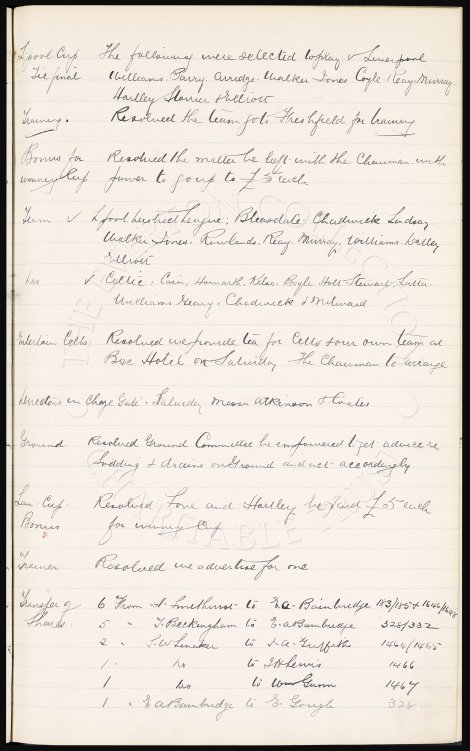 L'pool Cup The following were selected to play v Liverpool
Tie final Williams. Parry. Arridge. Walker Jones Coyle. Reay. Murray.
Hartley Storrier & Elliott
Training. Resolved the team go to Freshfield for training
Bonus for Resolved the matter be left with the Chairman with
winning Cup power to go up to £5 each
Team v L'pool District League: Bleasdale. Chadwick Lindsay
Walker Jones. Rowlands. Reay. Murray. Williams.
Elliott
Do v Celtic. Cain, Howarth. Kelso. Boyle Holt Stewart. Latta.
Williams Geary. Chadwick & Milward
Entertain Celts Resolved we provide tea for Celts & our own team at
Bee Hotel on Saturday The Chairman to arrange
Directors in Charge Gate. Saturday Messrs Atkinson & Coates
Ground Resolved Ground Committee be empowered to get advice re
Sodding & drains on Ground and act accordingly
Lan. Cup. Resolved Love and Hartley be paid £5 each
Bonus for winning Cup
Trainer Resolved we advertise for one
Transfer of 6 From A. Smethurst to E.A. Bainbridge 183/185 & 1646/1648
Shares. 5 " T. Beckingham to E A Bainbridge 328/332
2 " to J. A. Griffiths 1464/1465
1. Do to J H Lewis 1466
1 Do. to Wm Gunn 1467
1 " E A Bainbridge to E. Gough 328
THE EVERTON COLLECTION
CHARITABLE TRUST